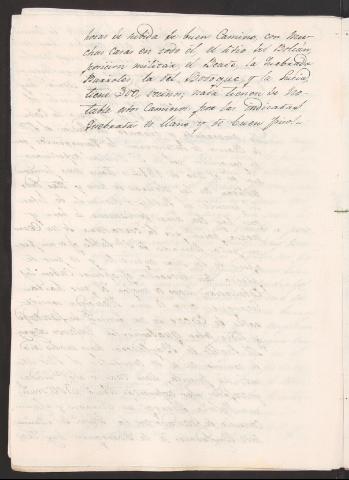 horas de subida de buen Camino, con mu-
chas casas en todo él. el sitio del Bolián,
posicion militar, el Beaté, la Quebrada
Barrotes, la del Bosoque, y la Subida
tiene 300 vecinos, nada tienen de no-
table estos caminos por las indicadas
Quebradas es llano, y de buen piso.–